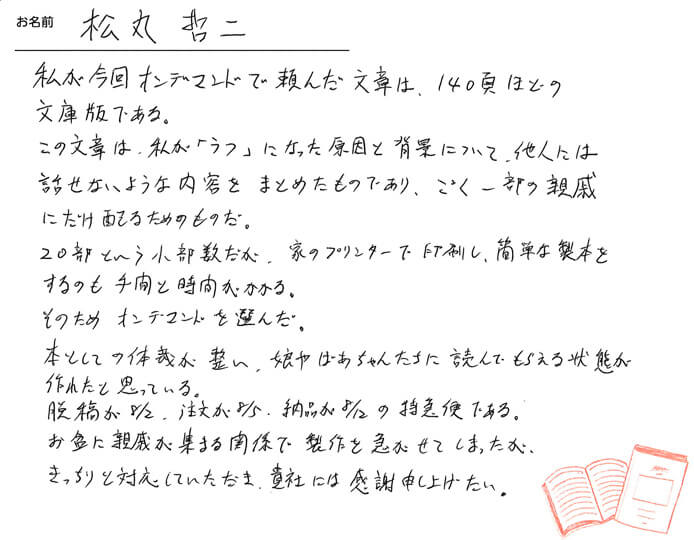 お名前 松丸 哲二
私が今回オンデマンドで頼んだ文章は、140頁ほどの
文庫版である。
この文章は、私が「うつ」になった原因と背景について、他人には
話せないような内容をまとめたものであり、ごく一部の親戚
にだけ配るためのものだ。
20部という小部数だが、家のプリンターで印刷し、簡単な製本を
するのも手間と時間がかかる。
そのためオンデマンドを選んだ。
本としての体裁が整い、娘やばあちゃんたちに読んでもらえる状態が
作れたと思っている。
脱稿が8/2、注文が8/5、納品が8/12の特急便である。
お盆に親戚が集まる関係で製作を急がせてしまったが、
きっちりと対応していただき、貴社には感謝申し上げたい。